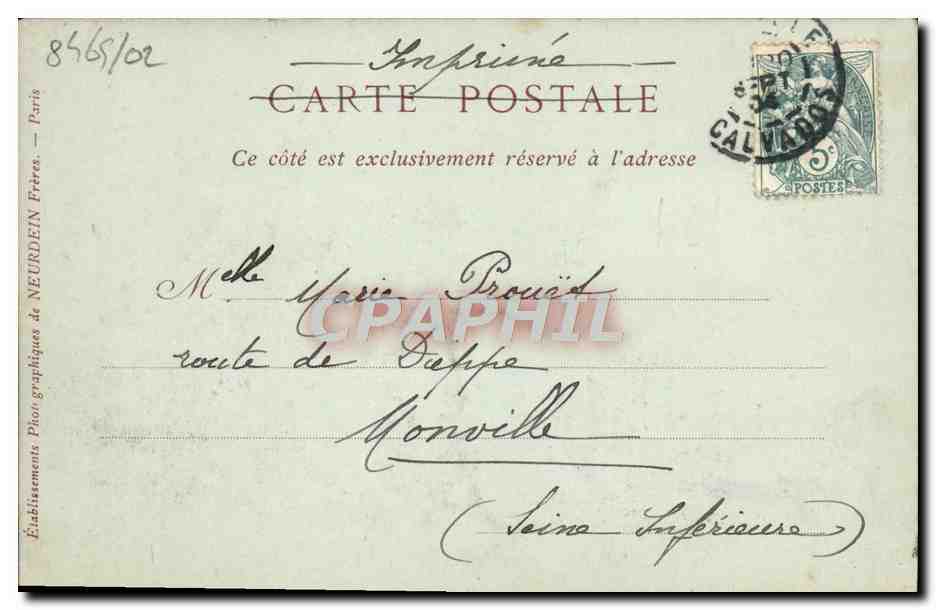 8465/02
Imprimé
CARTE POSTALE
Ce côté est exclusivement réservé à l'adresse
SEPT
04
CALVADOS
5c
POSTES
Melle Marie Prouës
route de Dieppe
Monville
(Seine Inférieure)
CPAPHIL
Établissements Photographiques de NEURDEIN Frères. — Paris